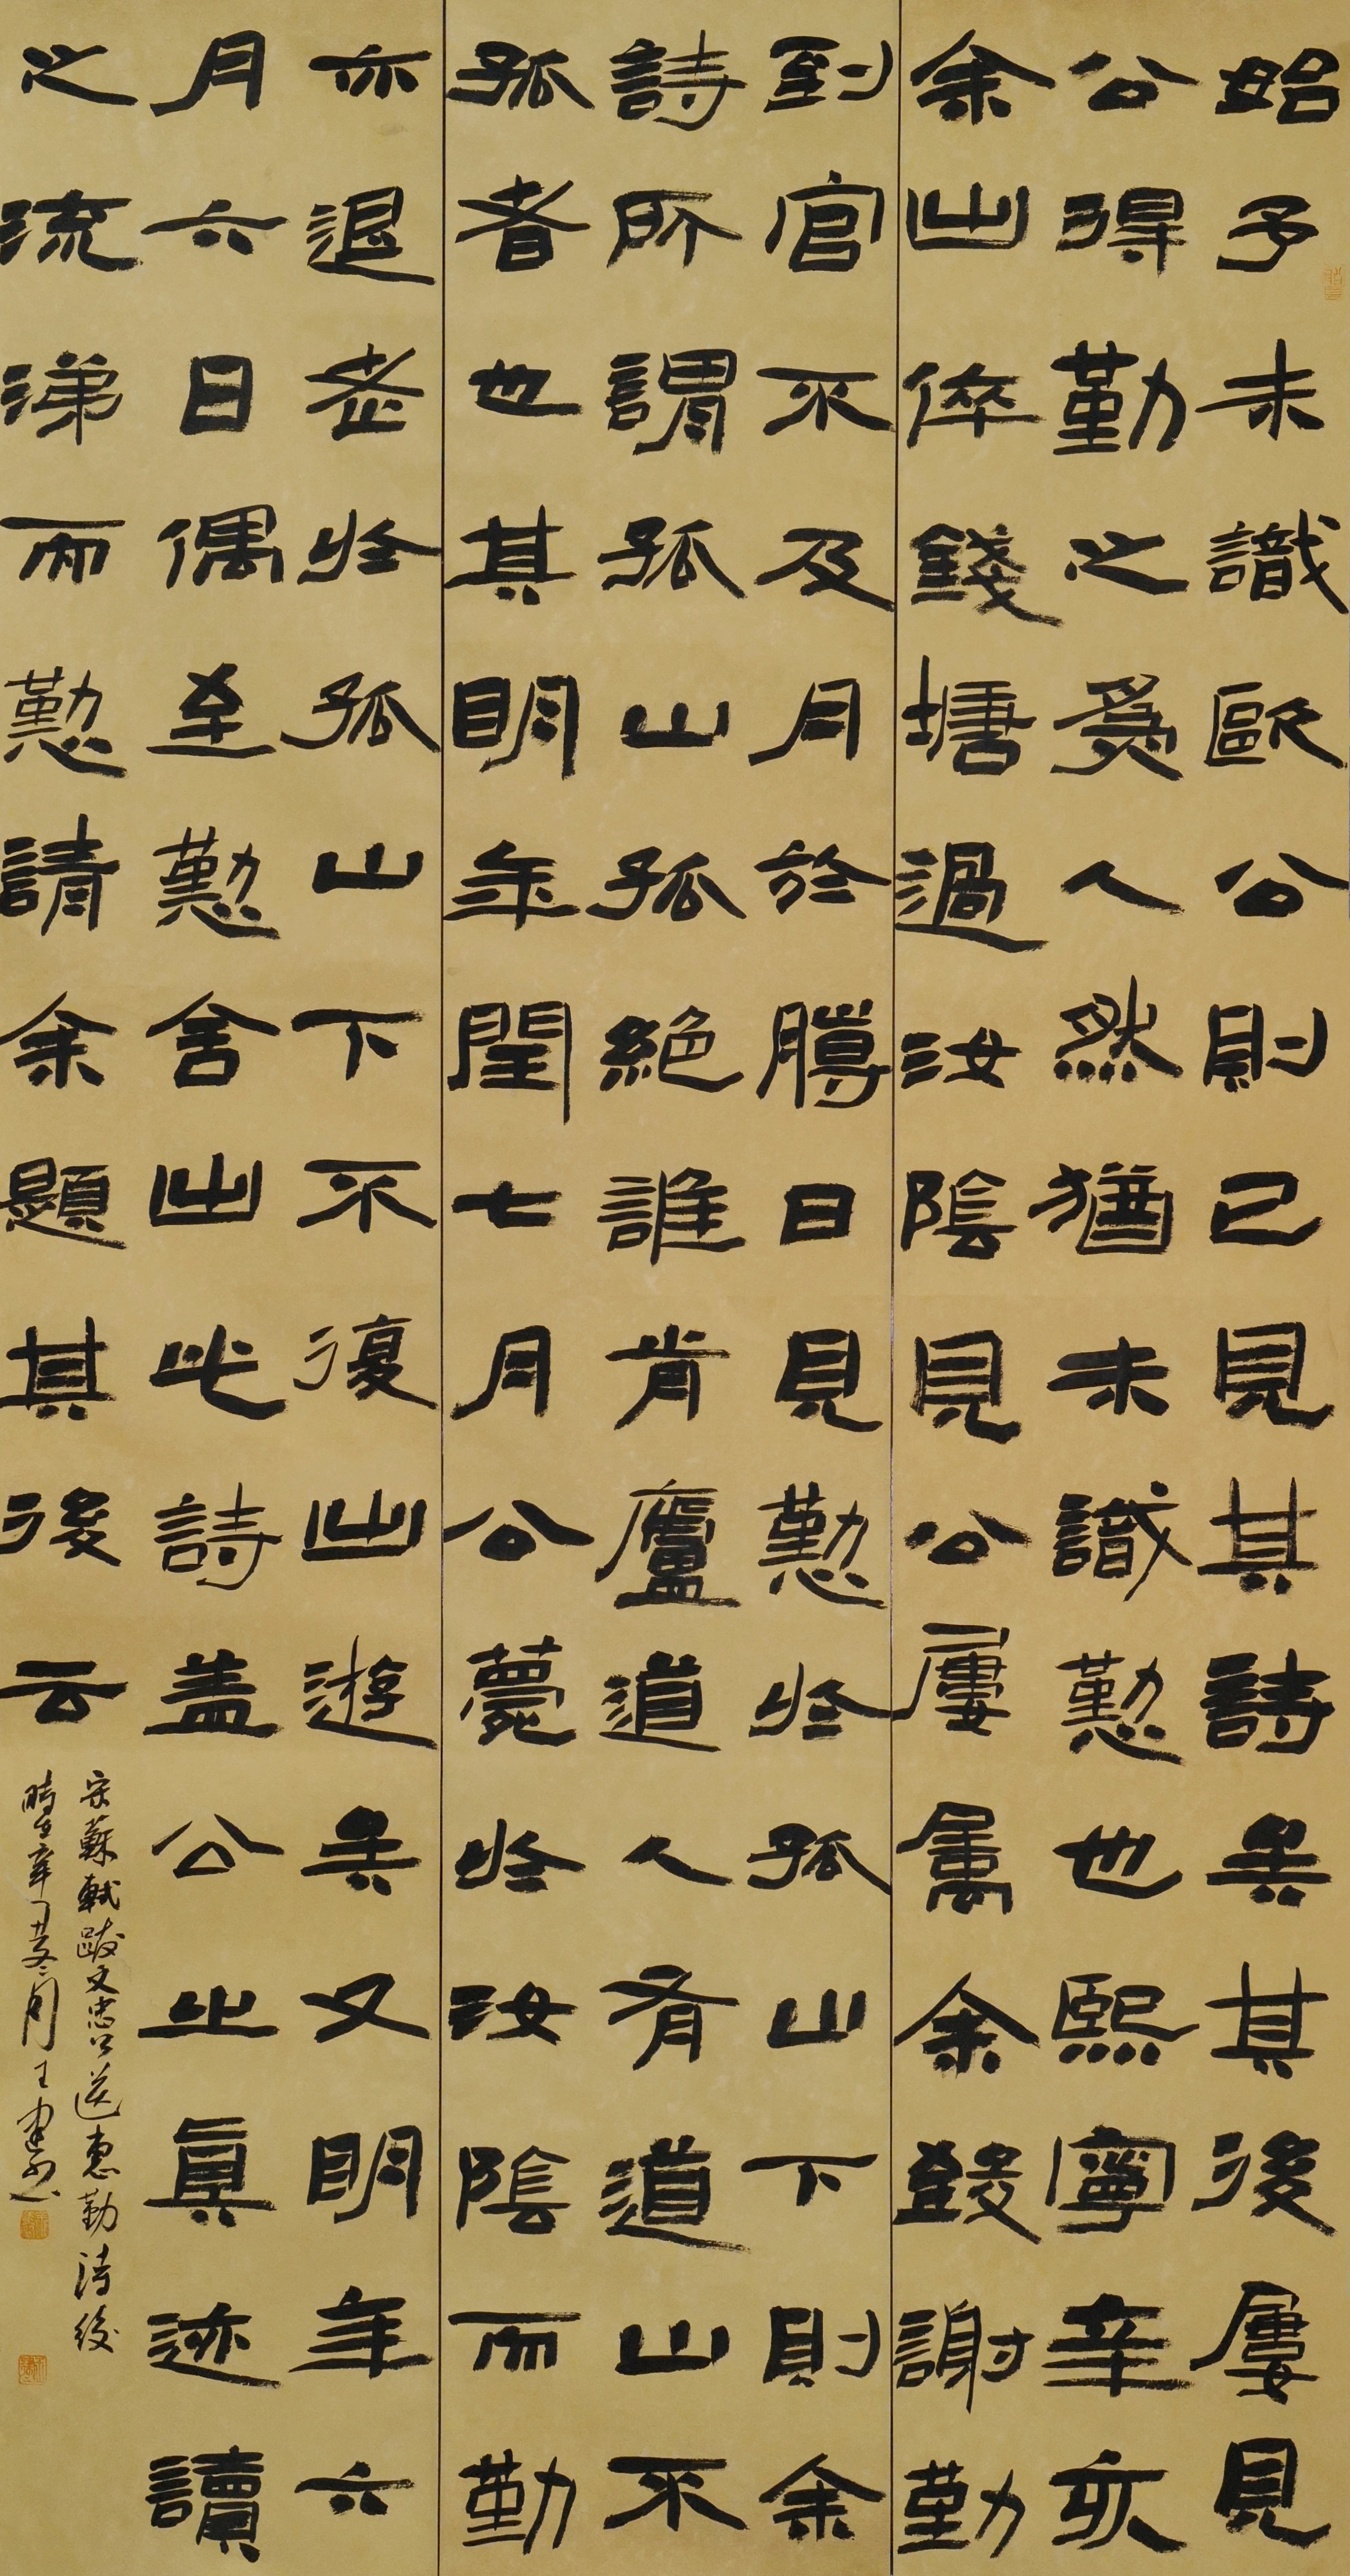 始予未識歐公則已見其詩矣其後屢見
公得勤之為人然猶未識懃也熙寧辛亥
余出倅錢塘過汝陰見公屢屬余致謝勤
到官不及月於臘日見懃於孤山下則余
詩所謂孤山孤絕誰肯廬道人有道山不
孤者也其明年閏七月公薨於汝陰而勤
亦退老於孤山下不復出遊矣又明年六
月六日偶至懃舍出此詩盖公之眞迹讀
之流涕而懃請余題其後云
宋蘇軾跋文忠公送惠勤詩後
時在辛丑冬月王建